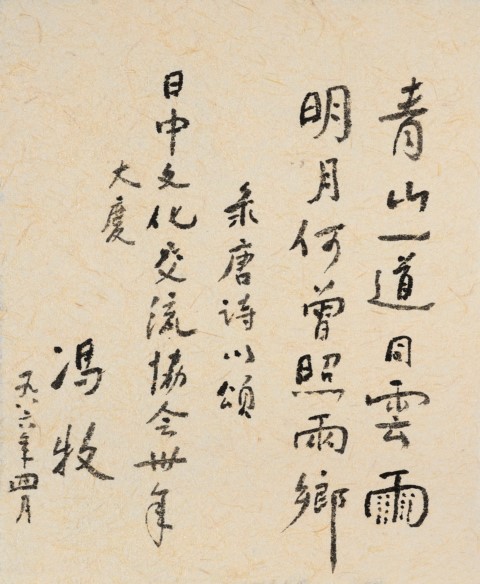 青山一道同雲雨
明月何曾照兩鄉
采唐詩以頌
日中文化交流協会卅年
大慶
冯牧
一九八六年四月